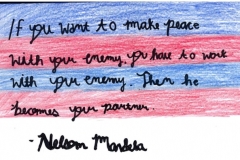 If you want to make peace
with your enemy, you have to work
with your enemy. Then he
becomes your partner.
- Nelson Mandela